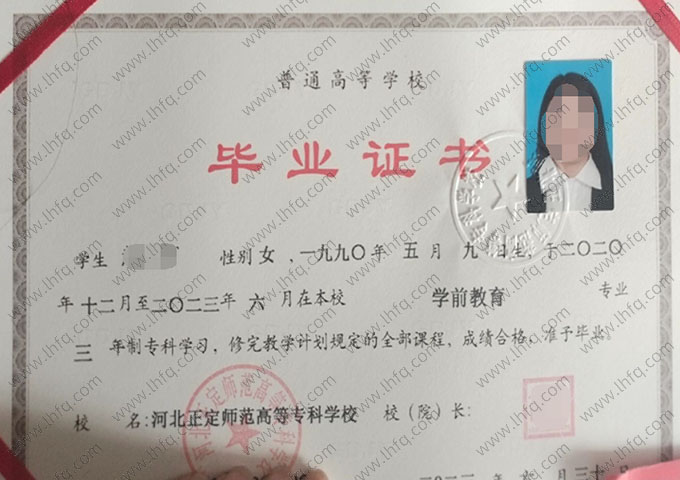 普通高等学校
毕业证书
学生 性别 女 ，一九九〇年 五 月 九 日生，于二〇二〇
年 十二月至二〇二三年 六 月在本校 学前教育 专业
三 年制专科学习，修完教学计划规定的全部课程，成绩合格，准予毕业。
校 名：河北正定师范高等专科学校 校（院）长：
河北正定师范高等专科学校
年 六 月三十日
www.lhfq.com